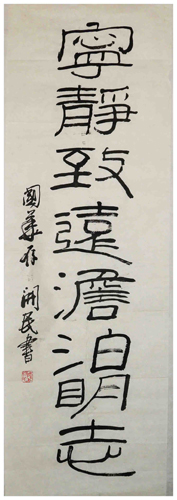 寧靜致遠澹泊明志
國華存
開民書